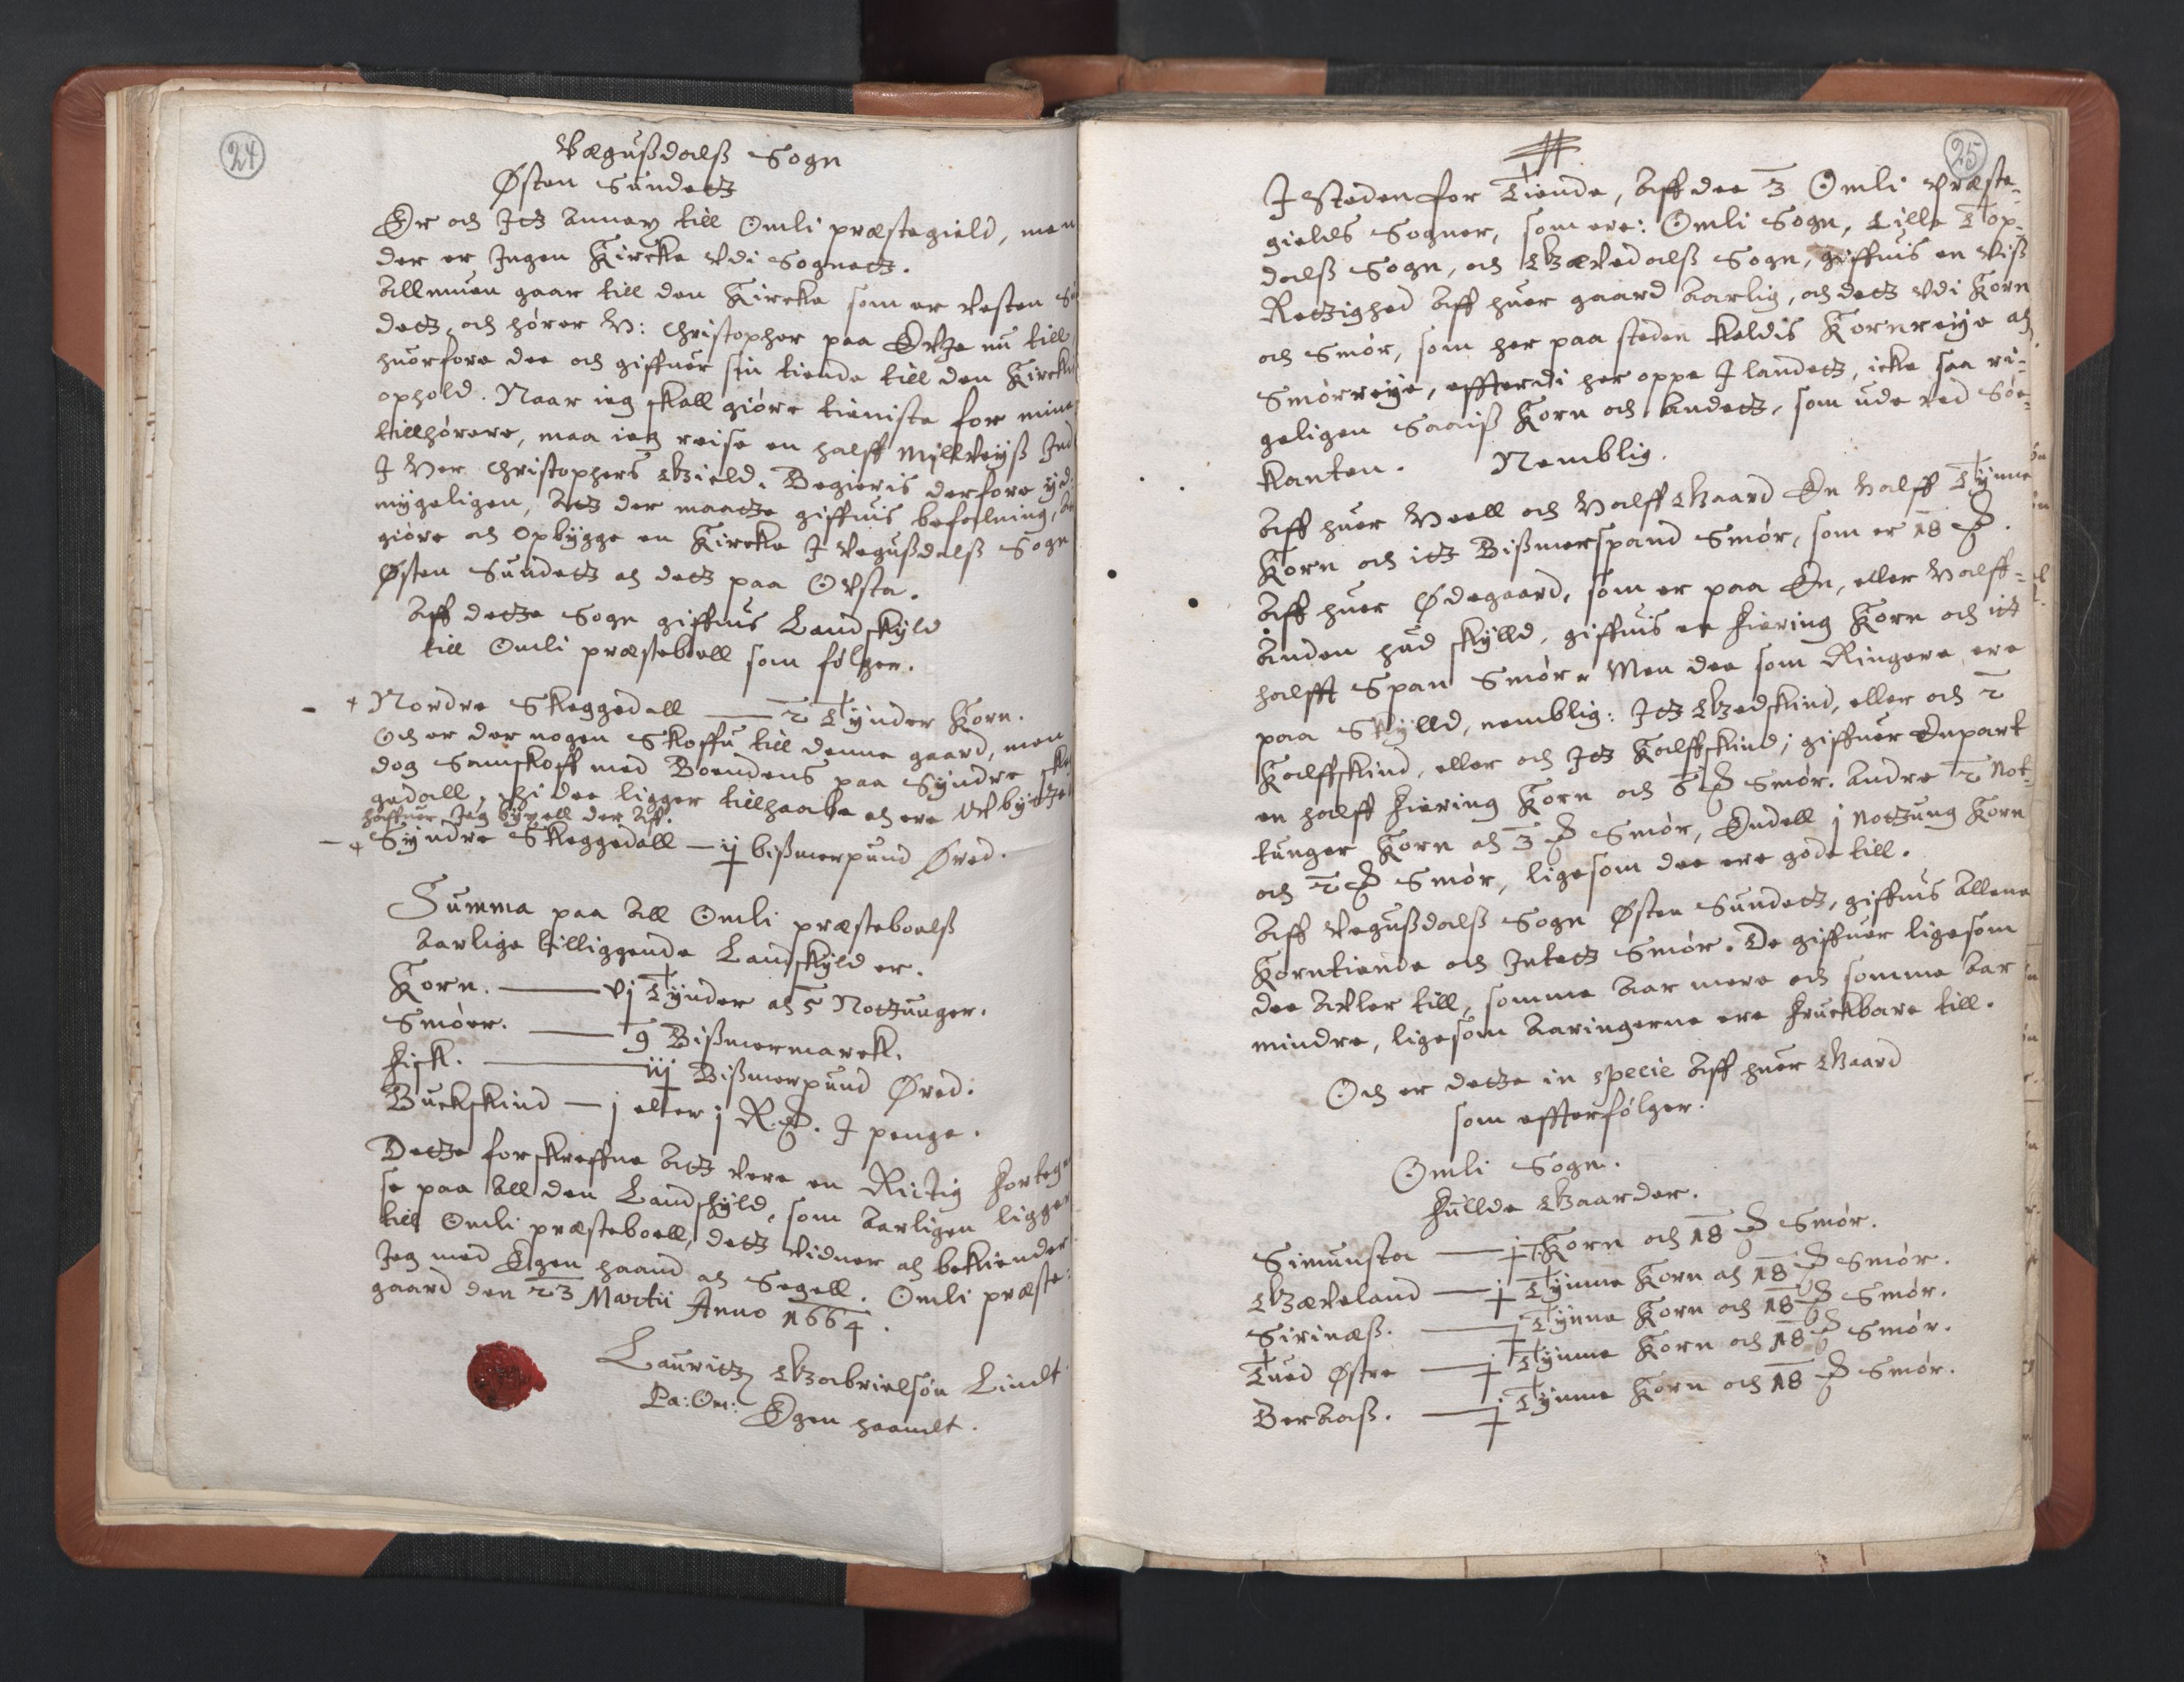 24
Vægußdalß Sogn
Østen Sundetz
Er och Itz Annex till Omli præstegield, men
der er Ingen Kircke udi Sognetz.
Allmuen gaar till den Kircke som er Vesten
detz, och hører H: Christopher paa Evje nu till,
huorfore dee och giffuer sin tiende till den Kirckis
ophold. Naar ieg skall giøre tieniste for mine
tillhørere, maa ieg reise en halff Mijllveyß Ind
I Her Christophers Gield. Begieris derfore
mygeligen, Atz der maatze giffuis befalning,
giøre och opbygge en Kircke I Vegußdalß Sogn
Østen Sundetz och detz paa Ovsta.
Aff detze Sogn giffuis Landskyld
till Omli præsteboell som følger.
+ Nordre Skeggedall — 2 Tynder Korn.
Och er der nogen Skoffu till denne gaard, men
dog Samskoff med Boendens paa Syndre
gedall, thi dee ligger tillhaabe och ere
haffuer Jeg bygell der Aff.
+ Syndre Skeggedall — ij bißmerpund Øred.
Summa paa All Omli præsteboelß
Aarlige tilliggende Landskyld er.
Korn. — vj Tynder och 5 Notzunger.
Smøer. — 9 Bißmermarck.
Fisk. — iij Bißmerpund Øred.
Buckskind — j eller j R. D. I penge.
Detze forskreffne Atz vere en Riitig Forteg
se paa All den Landskyld, som Aarligen ligger
till Omli præsteboell, detz vidner och bekiender
Jeg med Egen haand och Segell. Omli præste-
gaard den 23 Martii Anno 1664.
Lauritz Gabrielsøn Lindt
Pa: Om: Egen haandt.
25
I Steden for Tiende, Aff dee 3 Omli Præste-
gields Sogner, som ere: Omli Sogn, Lille Top-
dalß Sogn, och Gævedalß Sogn, giffuis en Viß
Retzighed Aff huer gaard Aarlig, och detz udi Korn
och Smør, som her paa steden kaldis Kornreije och
Smørreije, effterdi her oppe I landetz, icke saa ri-
geligen Saaiß Korn och Andetz, som ude ved Søe-
kanten. Nemblig.
Aff huer Heell och Halff Gaard En Halff Tynne
Korn och itz Bißmerspand Smør, som er 18
Aff huer Ødegaard, som er paa En, eller Halff-
Anden hud skylld, giffuis en Fiering Korn och itt
halfft Span Smør. Men dee som Ringere ere
paa Skylld, nemblig: Itz Gedskind, eller och 2
Kalffskind, eller och Itz Kalffskind; giffuer Enpart
en halff Fiering Korn och 6 Smør. Andre 2 Not-
tunger Korn och 3 Smør, Endell j Notzung Korn
och 2 Smør, ligesom dee ere gode till.
Aff Vegußdalß Sogn Østen Sundetz, giffuis Allene
Korntiende och Intetz Smør. De giffuer ligesom
dee Avler till, somme Aar mere och somme Aar
mindre, ligesom Aaringerne ere Fruckbare till.
Och er detze in specie Aff huer Gaard
som effterfølger.
Omli Sogn.
Fullde Gaarder.
Simunsta — j T Korn och 18 Smør.
Gæveland — j Tynne Korn och 18 Smør.
Sirinæß. — j Tynne Korn och 18 Smør.
Tued Østre — j Tynne Korn och 18 Smør.
Ber Aaß. — j Tynne Korn och 18 Smør.